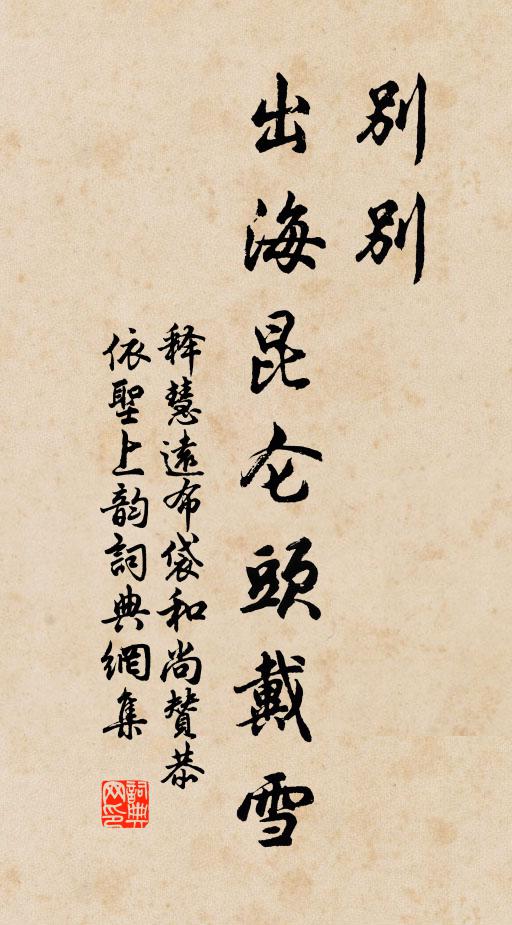 別別
出海昆仑頭戴雪
释慧遠布袋和尚贊恭
依聖上韵詞典網集
詞典网印